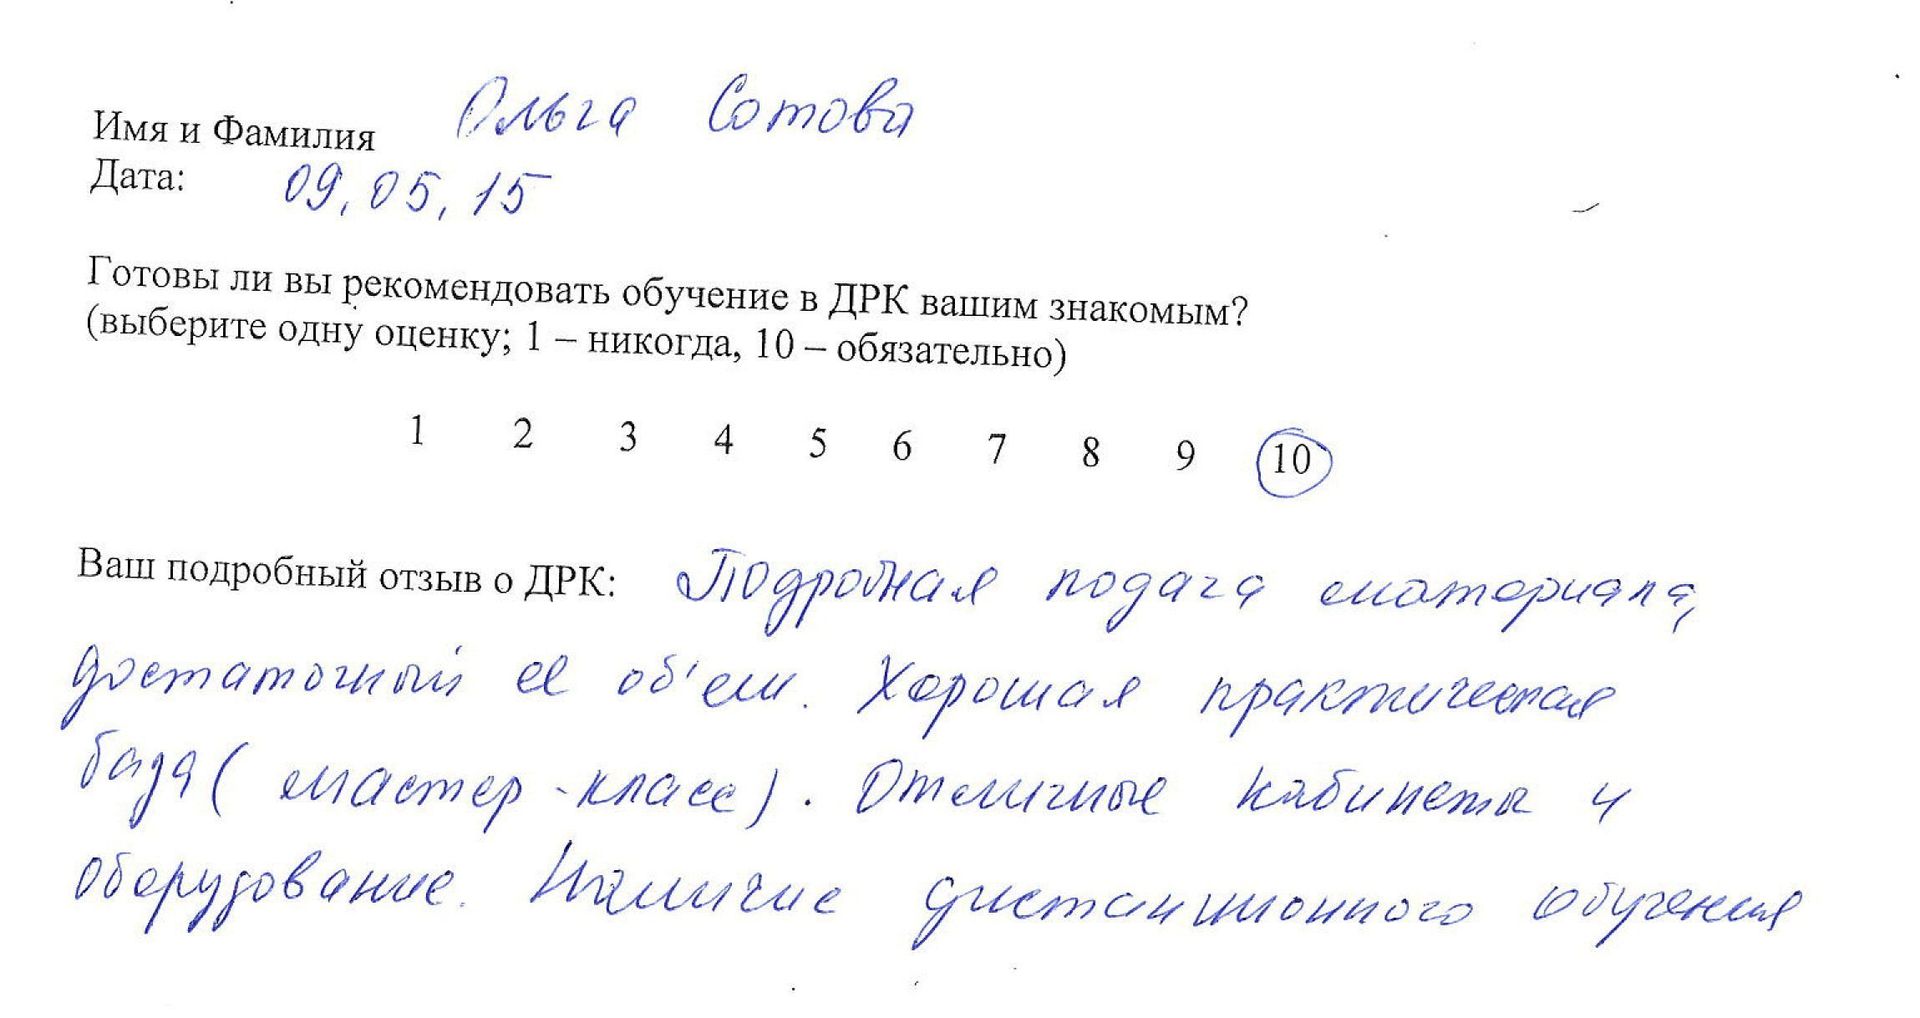 Имя и Фамилия Ольга Сотова
Дата: 09.05.15
Готовы ли вы рекомендовать обучение в ДРК вашим знакомым?
(выберите одну оценку; 1 – никогда, 10 – обязательно)
1 2 3 4 5 6 7 8 9 10
Ваш подробный отзыв о ДРК: Подробная подача материала,
достаточный ее об'ем. Хорошая практическая
база (мастер-класс). Отличные кабинеты и
оборудование. Наличие дистанционного обучения